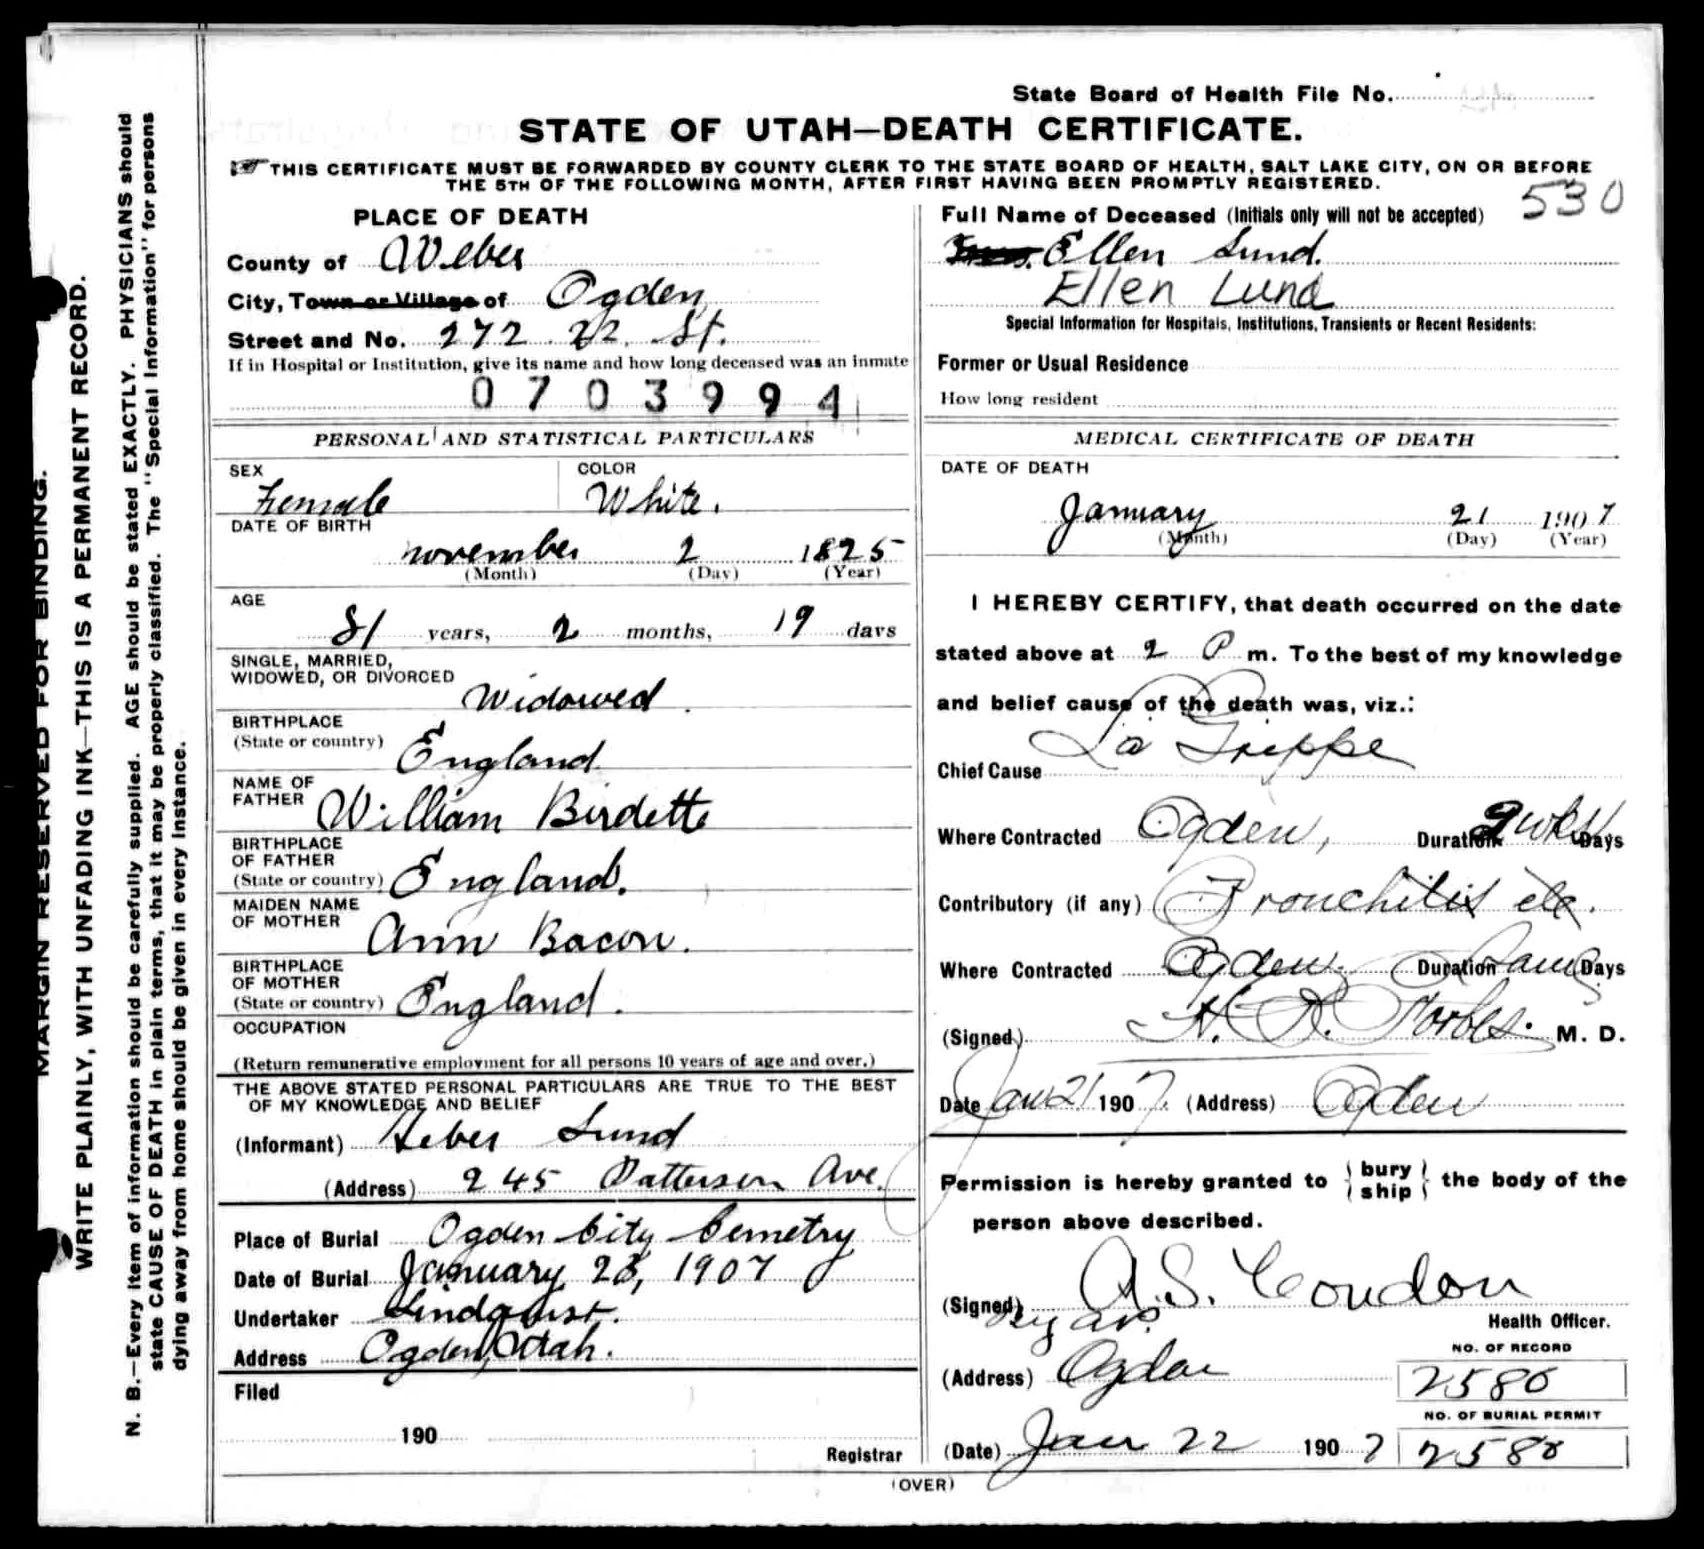 State Board of Health File No.
STATE OF UTAH—DEATH CERTIFICATE.
THIS CERTIFICATE MUST BE FORWARDED BY COUNTY CLERK TO THE STATE BOARD OF HEALTH, SALT LAKE CITY, ON OR BEFORE
THE 5TH OF THE FOLLOWING MONTH, AFTER FIRST HAVING BEEN PROMPTLY REGISTERED.
530
MARGIN RESERVED FOR BINDING.
WRITE PLAINLY, WITH UNFADING INK—THIS IS A PERMANENT RECORD.
N. B.—Every item of information should be carefully supplied. AGE should be stated EXACTLY. PHYSICIANS should
state CAUSE OF DEATH in plain terms, that it may be properly classified. The "Special Information" for persons
dying away from home should be given in every instance.
PLACE OF DEATH
County of Weber
City, Town or Village of Ogden
Street and No. 272 22 St.
If in Hospital or Institution, give its name and how long deceased was an inmate
0703994
PERSONAL AND STATISTICAL PARTICULARS
SEX
Female
COLOR
White.
DATE OF BIRTH
november 2 1825
(Month) (Day) (Year)
AGE
81 years, 2 months, 19 days
SINGLE, MARRIED,
WIDOWED, OR DIVORCED
Widowed.
BIRTHPLACE
(State or country) England
NAME OF
FATHER William Birdette
BIRTHPLACE
OF FATHER
(State or country) England.
MAIDEN NAME
OF MOTHER
Ann Bacon.
BIRTHPLACE
OF MOTHER
(State or country) England.
OCCUPATION
(Return remunerative employment for all persons 10 years of age and over.)
THE ABOVE STATED PERSONAL PARTICULARS ARE TRUE TO THE BEST
OF MY KNOWLEDGE AND BELIEF
(Informant) Heber Lund
(Address) 245 Patterson Ave.
Place of Burial Ogden City Cemetry
Date of Burial January 23, 1907
Undertaker Lindquist.
Address Ogden, Utah.
Filed
190
Registrar
Full Name of Deceased (Initials only will not be accepted)
Ellen Lund.
Ellen Lund
Special Information for Hospitals, Institutions, Transients or Recent Residents:
Former or Usual Residence
How long resident
MEDICAL CERTIFICATE OF DEATH
DATE OF DEATH
January 21 1907
(Month) (Day) (Year)
I HEREBY CERTIFY, that death occurred on the date
stated above at 2 P m. To the best of my knowledge
and belief cause of the death was, viz.:
Chief Cause La Grippe
Where Contracted Ogden, Duration 2 wks Days
Contributory (if any) Bronchitis etc.
Where Contracted Ogden. Duration Same Days
(Signed) H. Forbes. M. D.
Date Jan 21 1907. (Address) Ogden
Permission is hereby granted to {bury
ship} the body of the
person above described.
(Signed) A. S. Condon
Health Officer.
(Address) Ogden
NO. OF RECORD
2580
NO. OF BURIAL PERMIT
2580
(Date) Jan 22 1907
(OVER)